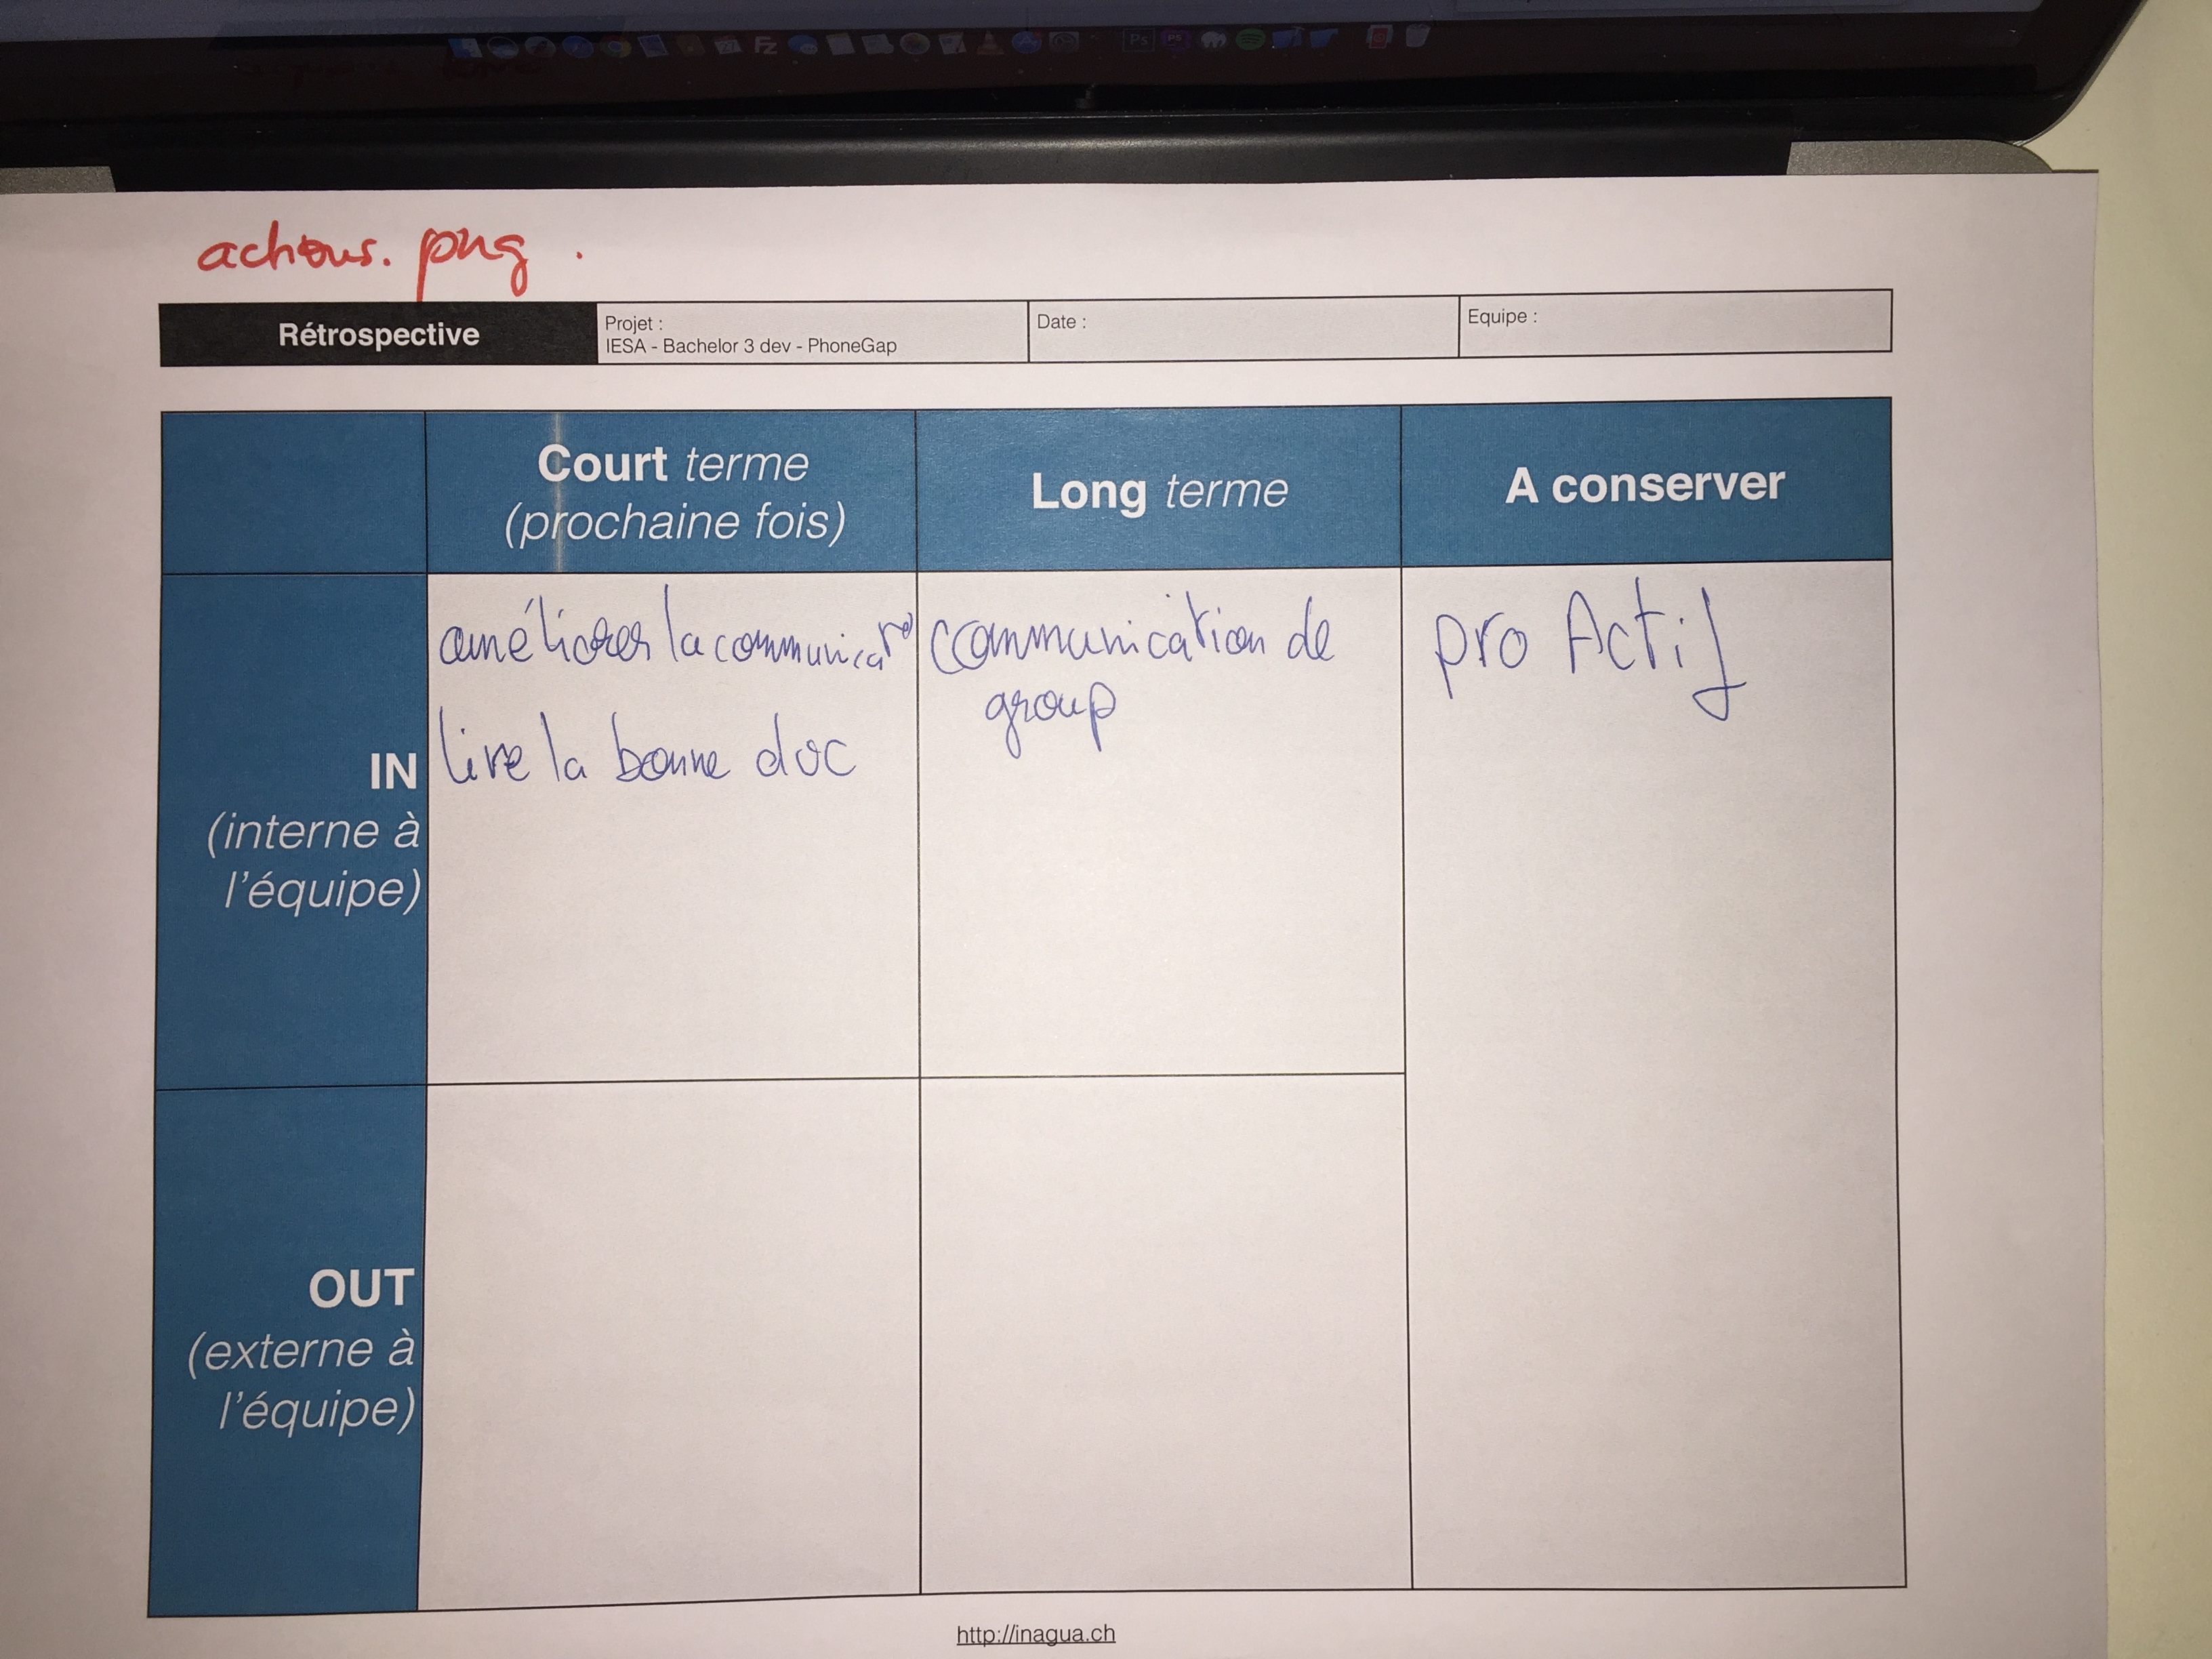 actions.png.
Rétrospective
Projet :
IESA - Bachelor 3 dev - PhoneGap
Date :
Equipe :
Court terme
(prochaine fois)
Long terme
A conserver
IN
(interne à
l'équipe)
améliorer la communicat°
lire la bonne doc
communication de
group
pro Actif
OUT
(externe à
l'équipe)
http://inagua.ch